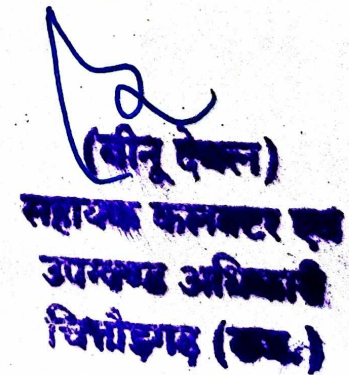 (बीनू देवल)
सहायक कलक्टर एवं
उपखण्ड अधिकारी
चित्तौड़गढ़ (राज.)